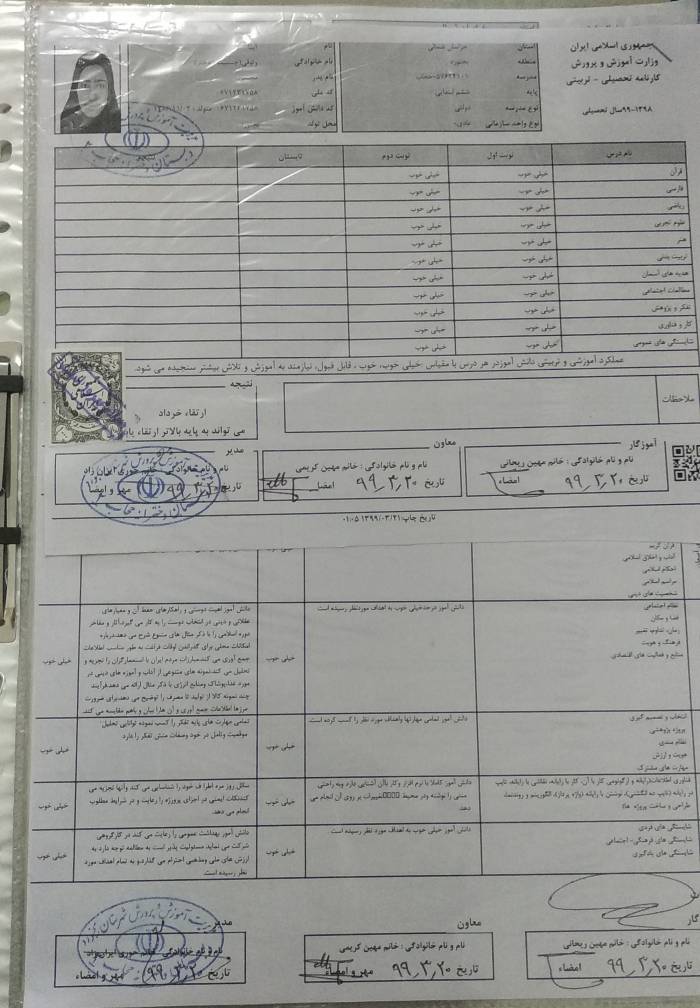 جمهوری اسلامی ایران
وزارت آموزش و پرورش
کارنامه تحصیلی - تربیتی
۱۳۹۸-۹۹ سال تحصیلی
استان خراسان شمالی
منطقه بجنورد
مدرسه
پایه ششم ابتدایی
نوع مدرسه دولتی
نوع واحد سازمانی عادی
نام
نام خانوادگی
نام پدر
کد ملی
کد دانش آموز
محل تولد
نام درس نوبت اول نوبت دوم تابستان
قرآن خیلی خوب خیلی خوب
فارسی خیلی خوب خیلی خوب
ریاضی خیلی خوب خیلی خوب
علوم تجربی خیلی خوب خیلی خوب
هنر خیلی خوب خیلی خوب
تربیت بدنی خیلی خوب خیلی خوب
هدیه های آسمان خیلی خوب خیلی خوب
مطالعات اجتماعی خیلی خوب خیلی خوب
تفکر و پژوهش خیلی خوب خیلی خوب
کار و فناوری خیلی خوب خیلی خوب
شایستگی های عمومی خیلی خوب خیلی خوب
عملکرد آموزشی و تربیتی دانش آموزدر هر درس با مقیاس :خیلی خوب، خوب ، قابل قبول، نیازمند به آموزش و تلاش بیشتر سنجیده می شود.
ملاحظات
نتیجه
ارتقاء خرداد
می تواند به پایه بالاتر ارتقاء یابد
آموزگار
نام و نام خانوادگی : خانم مهین ریحانی
تاریخ ۹۹,۳,۲۰ امضاء
معاون
نام و نام خانوادگی : خانم مهین کریمی
تاریخ ۹۹,۳,۲۰ امضا
مدیر
نام و نام خانوادگی : خانم حوری ایران زاد
تاریخ ۹۹,۳,۲۰ مهر و امضاء
تاریخ چاپ:۱۳۹۹/۰۳/۲۱ ۰۱:۰۵
قرآن کریم
آداب و اخلاق اسلامی
احکام اسلامی
مراسم اسلامی
شخصیت های دینی
نظام اجتماعی
فضا و مکان
زمان، تداوم، تغییر
فرهنگ و هویت
منابع و فعالیت های اقتصادی
دانش آموز درحدخیلی خوب به اهداف موردنظر رسیده است
خیلی خوب
دانش آموز اهیت دوستی و راهکارهای حفظ آن و معیارهای
عقلانی و دینی در انتخاب دوست را به کار می گیرد.آثار و مفاخر
دوره اسلامی را با ذکر مثال های متنوع شرح می دهد،درباره
امکانات محلی برای گذراندن اوقات فراغت به طور مناسب اطلاعات
جمع آوری می کند،مبارزات مردم ایران با استعمارگران را تجزیه و
تحلیل می کند،نمونه های متنوعی از آداب و آموزه های دینی در
مورد غذا،پوشاک ومنابع انرژی با ذکر مثال ارائه می دهد،فرآیند
چند نمونه کالا از تولید تا مصرف را توضیح می دهد،برای ضرورت
مرزها اطلاعات جمع آوری و آن هارا بیان و باهم مقایسه می کند
خیلی خوب
انتخاب و تصمیم گیری
پروژه پژوهشی
نظام مندی
هویت و ارزش
مهارت های مشترک
دانش آموز تمامی مهارتها واهداف مورد نظر را کسب کرده است.
خیلی خوب
تمامی مهارت های پایه تفکر را کسب نموده توانایی تحلیل
موقعیت وتامل در خود وصفات منش تفکر را دارد
خیلی خوب
فناوری اطلاعات(رایانه و ارگونومی کار با آن، کار با رایانه، نقاشی با رایانه، تایپ
در رایانه (تایپ ده انگشتی)، نوشتن با رایانه (واژه پرداز)، الگوریتم و روندنما،
طراحی و ساخت پروژه ها)
دانش آموز کاملا با نرم افزار وکار باآن آشنایی دارد وبه راحتی
متنی را نوشته ودر محیط □□□□تغییرات بر روی آن انجام می
دهد
خیلی خوب
مسائل روز مره اطراف خود را شناسایی می کند وآنها تجزیه می
کند،نکات ایمنی در اجرای پروژه را رعایت و در شرایط مطلوب
انجام می دهد.
خیلی خوب
شایستگی های فردی
شایستگی های فرهنگی- اجتماعی
شایستگی های یادگیری
دانش آموز خیلی خوب به اهداف مورد نظر رسیده است .
خیلی خوب
دانش آموز بهداشت عمومی را رعایت می کند در کارگروهی
شرکت می نماید،مسئولیت پذیر است به مطالعه توجه دارد به
ارزش های ملی ومذهبی احترام می گذارد،و به تمام اهداف مورد
نظر رسیده است.
خیلی خوب
نام و نام خانوادگی : خانم مهین ریحانی
تاریخ ۹۹,۳,۲۰ امضاء
معاون
نام و نام خانوادگی : خانم مهین کریمی
تاریخ ۹۹,۳,۲۰ مهر و امضاء
مدیر
نام و نام خانوادگی : خانم حوری ایران زاد
تاریخ ۹۹,۳,۲۰ مهر و امضاء